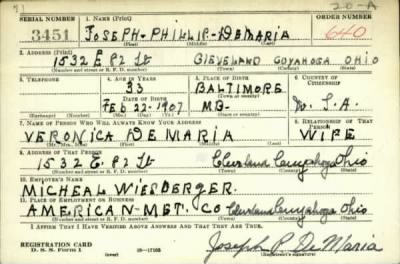 SERIAL NUMBER 1. NAME (Print) ORDER NUMBER
3451 JOSEPH - PHILLIP - DEMARIA 640
(First) (Middle) (Last)
2. ADDRESS (Print)
1532 E 82 St CLEVELAND CUYAHOGA OHIO
(Number and street or R. F. D. number) (Town) (County) (State)
3. TELEPHONE 4. AGE IN YEARS 5. PLACE OF BIRTH 6. COUNTRY OF CITIZENSHIP
33 BALTIMORE
DATE OF BIRTH (Town or county)
FEB 22 - 1907 MD- U. S. A.
(Exchange) (Number) (Mo.) (Day) (Yr.) (State or country)
7. NAME OF PERSON WHO WILL ALWAYS KNOW YOUR ADDRESS 8. RELATIONSHIP OF THAT PERSON
VERONICA DEMARIA WIFE
(Mr., Mrs., Miss) (First) (Middle) (Last)
9. ADDRESS OF THAT PERSON
1532 E. 82 St Cleveland Cuyahoga Ohio
(Number and street or R. F. D. number) (Town) (County) (State)
10. EMPLOYER'S NAME
MICHEAL WIERDERGER.
11. PLACE OF EMPLOYMENT OR BUSINESS
AMERICAN - MET. CO Cleveland Cuyahoga Ohio
(Number and street or R. F. D. number) (Town) (County) (State)
I AFFIRM THAT I HAVE VERIFIED ABOVE ANSWERS AND THAT THEY ARE TRUE.
REGISTRATION CARD
D. S. S. Form 1 (over) 16-17105
Joseph P. DeMaria
(Registrant's signature)